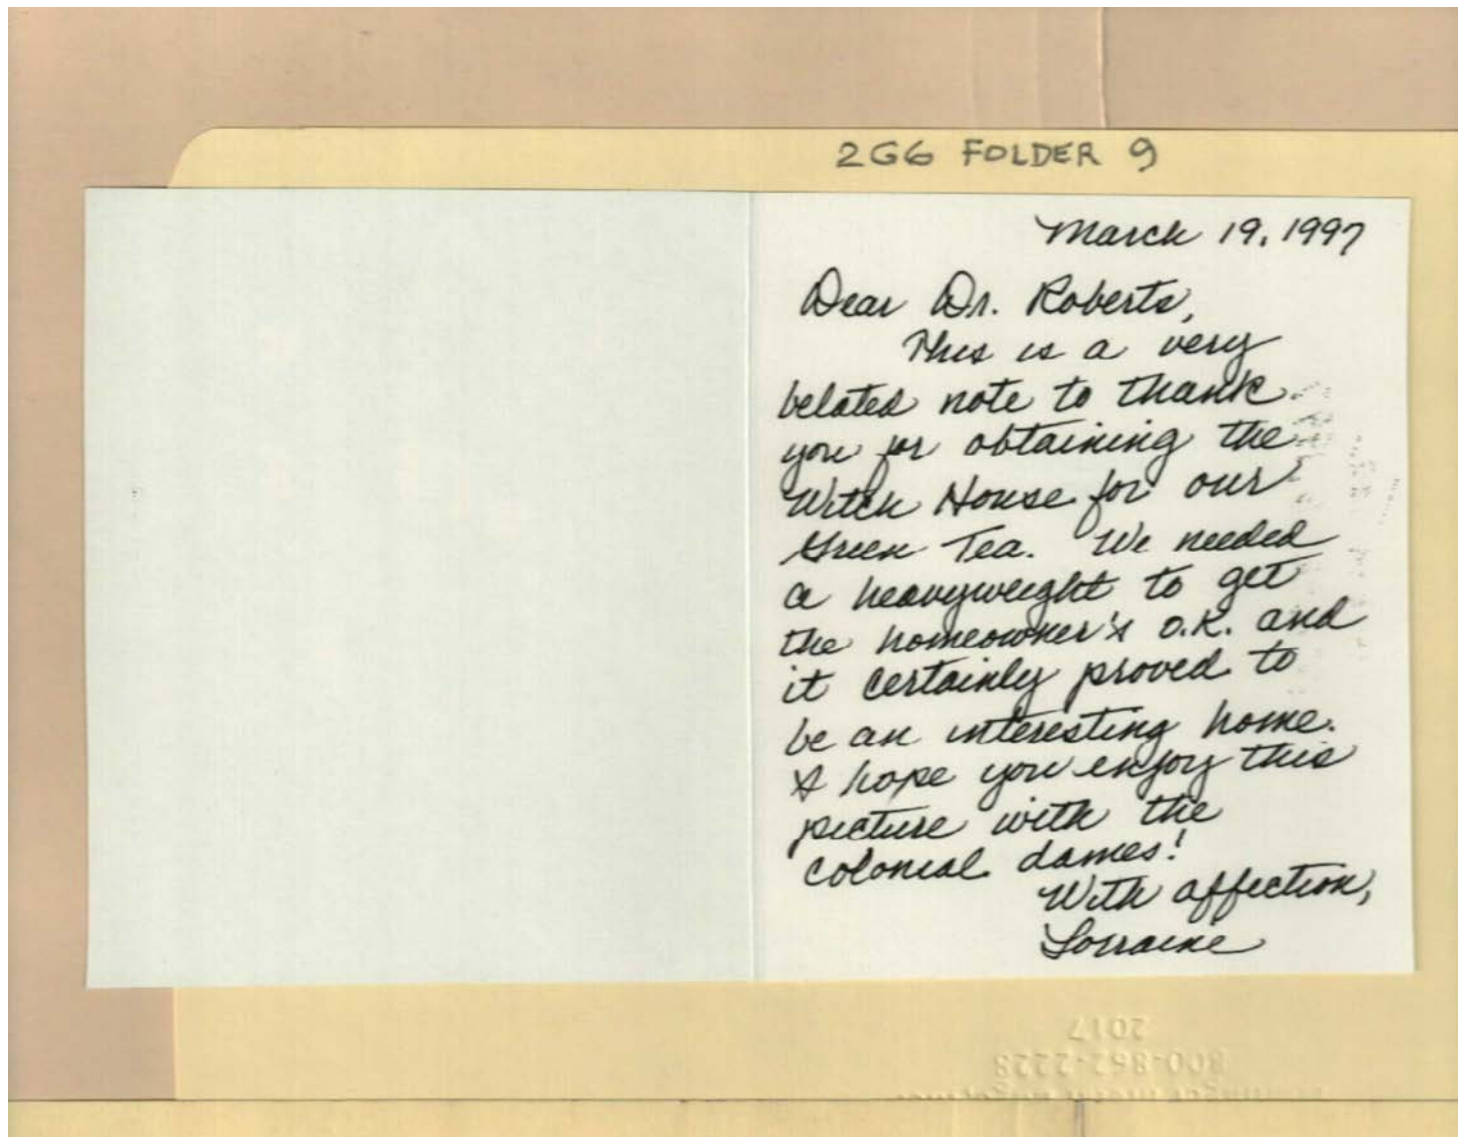 2G6 FOLDER 9
March 19, 1997
Dear Dr. Roberts,
This is a very
belated note to thank
you for obtaining the
Witch House for our
Green Tea. We needed
a heavyweight to get
the homeowner's O.K. and
it certainly proved to
be an interesting home.
I hope you enjoy this
picture with the
colonial dames!
With affection,
Lorraine
2017
800-862-2228